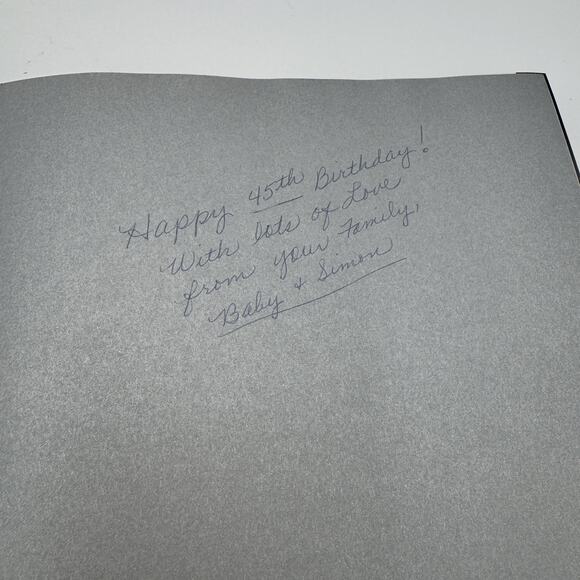 Happy 45th Birthday!
With lots of Love
from your Family,
Baby + Simon